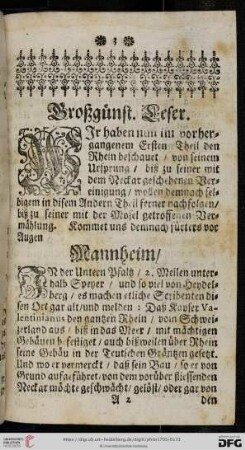 ❀ 3 ❀
Großgünst. Leser.
WJr haben nun im vorher-
gangenem Ersten Theil den
Rhein beschauet / von seinem
Ursprung / biß zu seiner mit
dem Neckar geschehenen Ver-
einigung / wollen demnach sel-
bigem in disem Andern Theil ferner nachfolgen /
biß zu seiner mit der Mosel getroffenen Ver-
mählung. Kommet uns demnach fürters vor
Augen
Mannheim /
JN der Untern Pfaltz / 2. Meilen unter-
halb Speyer / und so viel von Heydel-
berg / es machen etliche Scribenten di-
sen Ort gar alt / und melden: Daß Kayser Va-
lentinianus den gantzen Rhein / vom Schwei-
zerland aus / biß in das Meer / mit mächtigen
Gebäuen befestiget / auch bißweilen über Rhein
seine Gebäu in der Teutschen Gräntzen gesetzt.
Und wo er vermerckt / daß sein Bau / so er von
Grund aufgeführet / von dem vorüber fliessenden
Neckar möchte geschwächt / gelößt / oder gar von
A 2 den